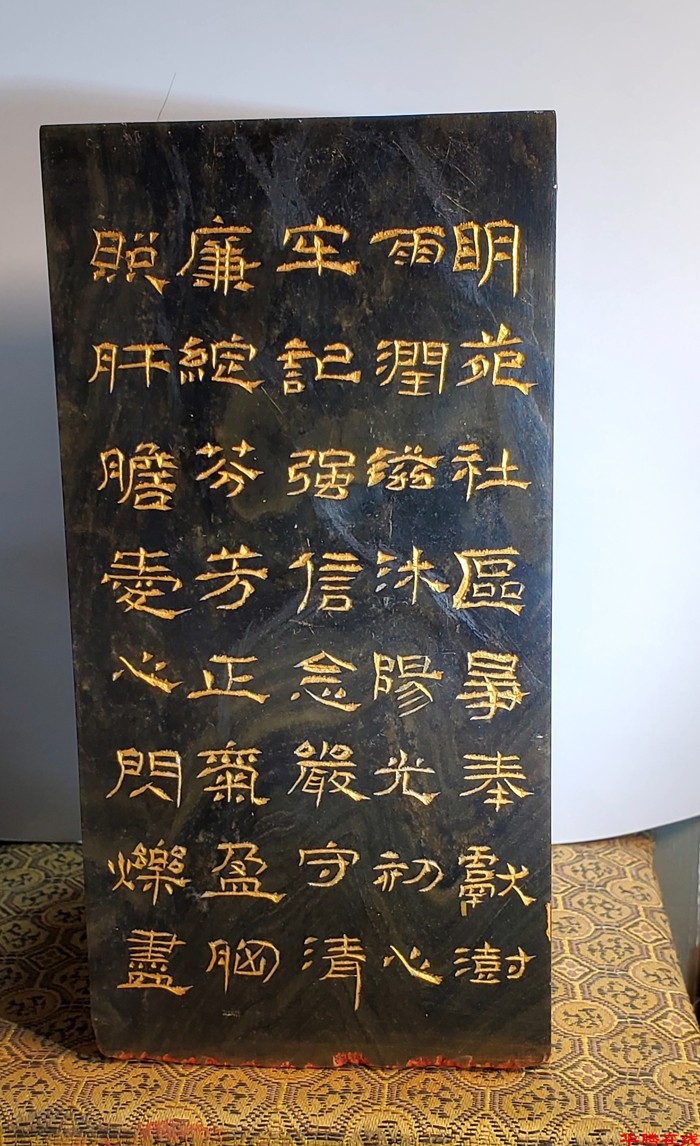 明苑社區奉獻澍
雨潤滋沐陽光初心
牢記强信念嚴守清
廉綻芬芳正氣盈胸
照肝膽愛心閃爍盡